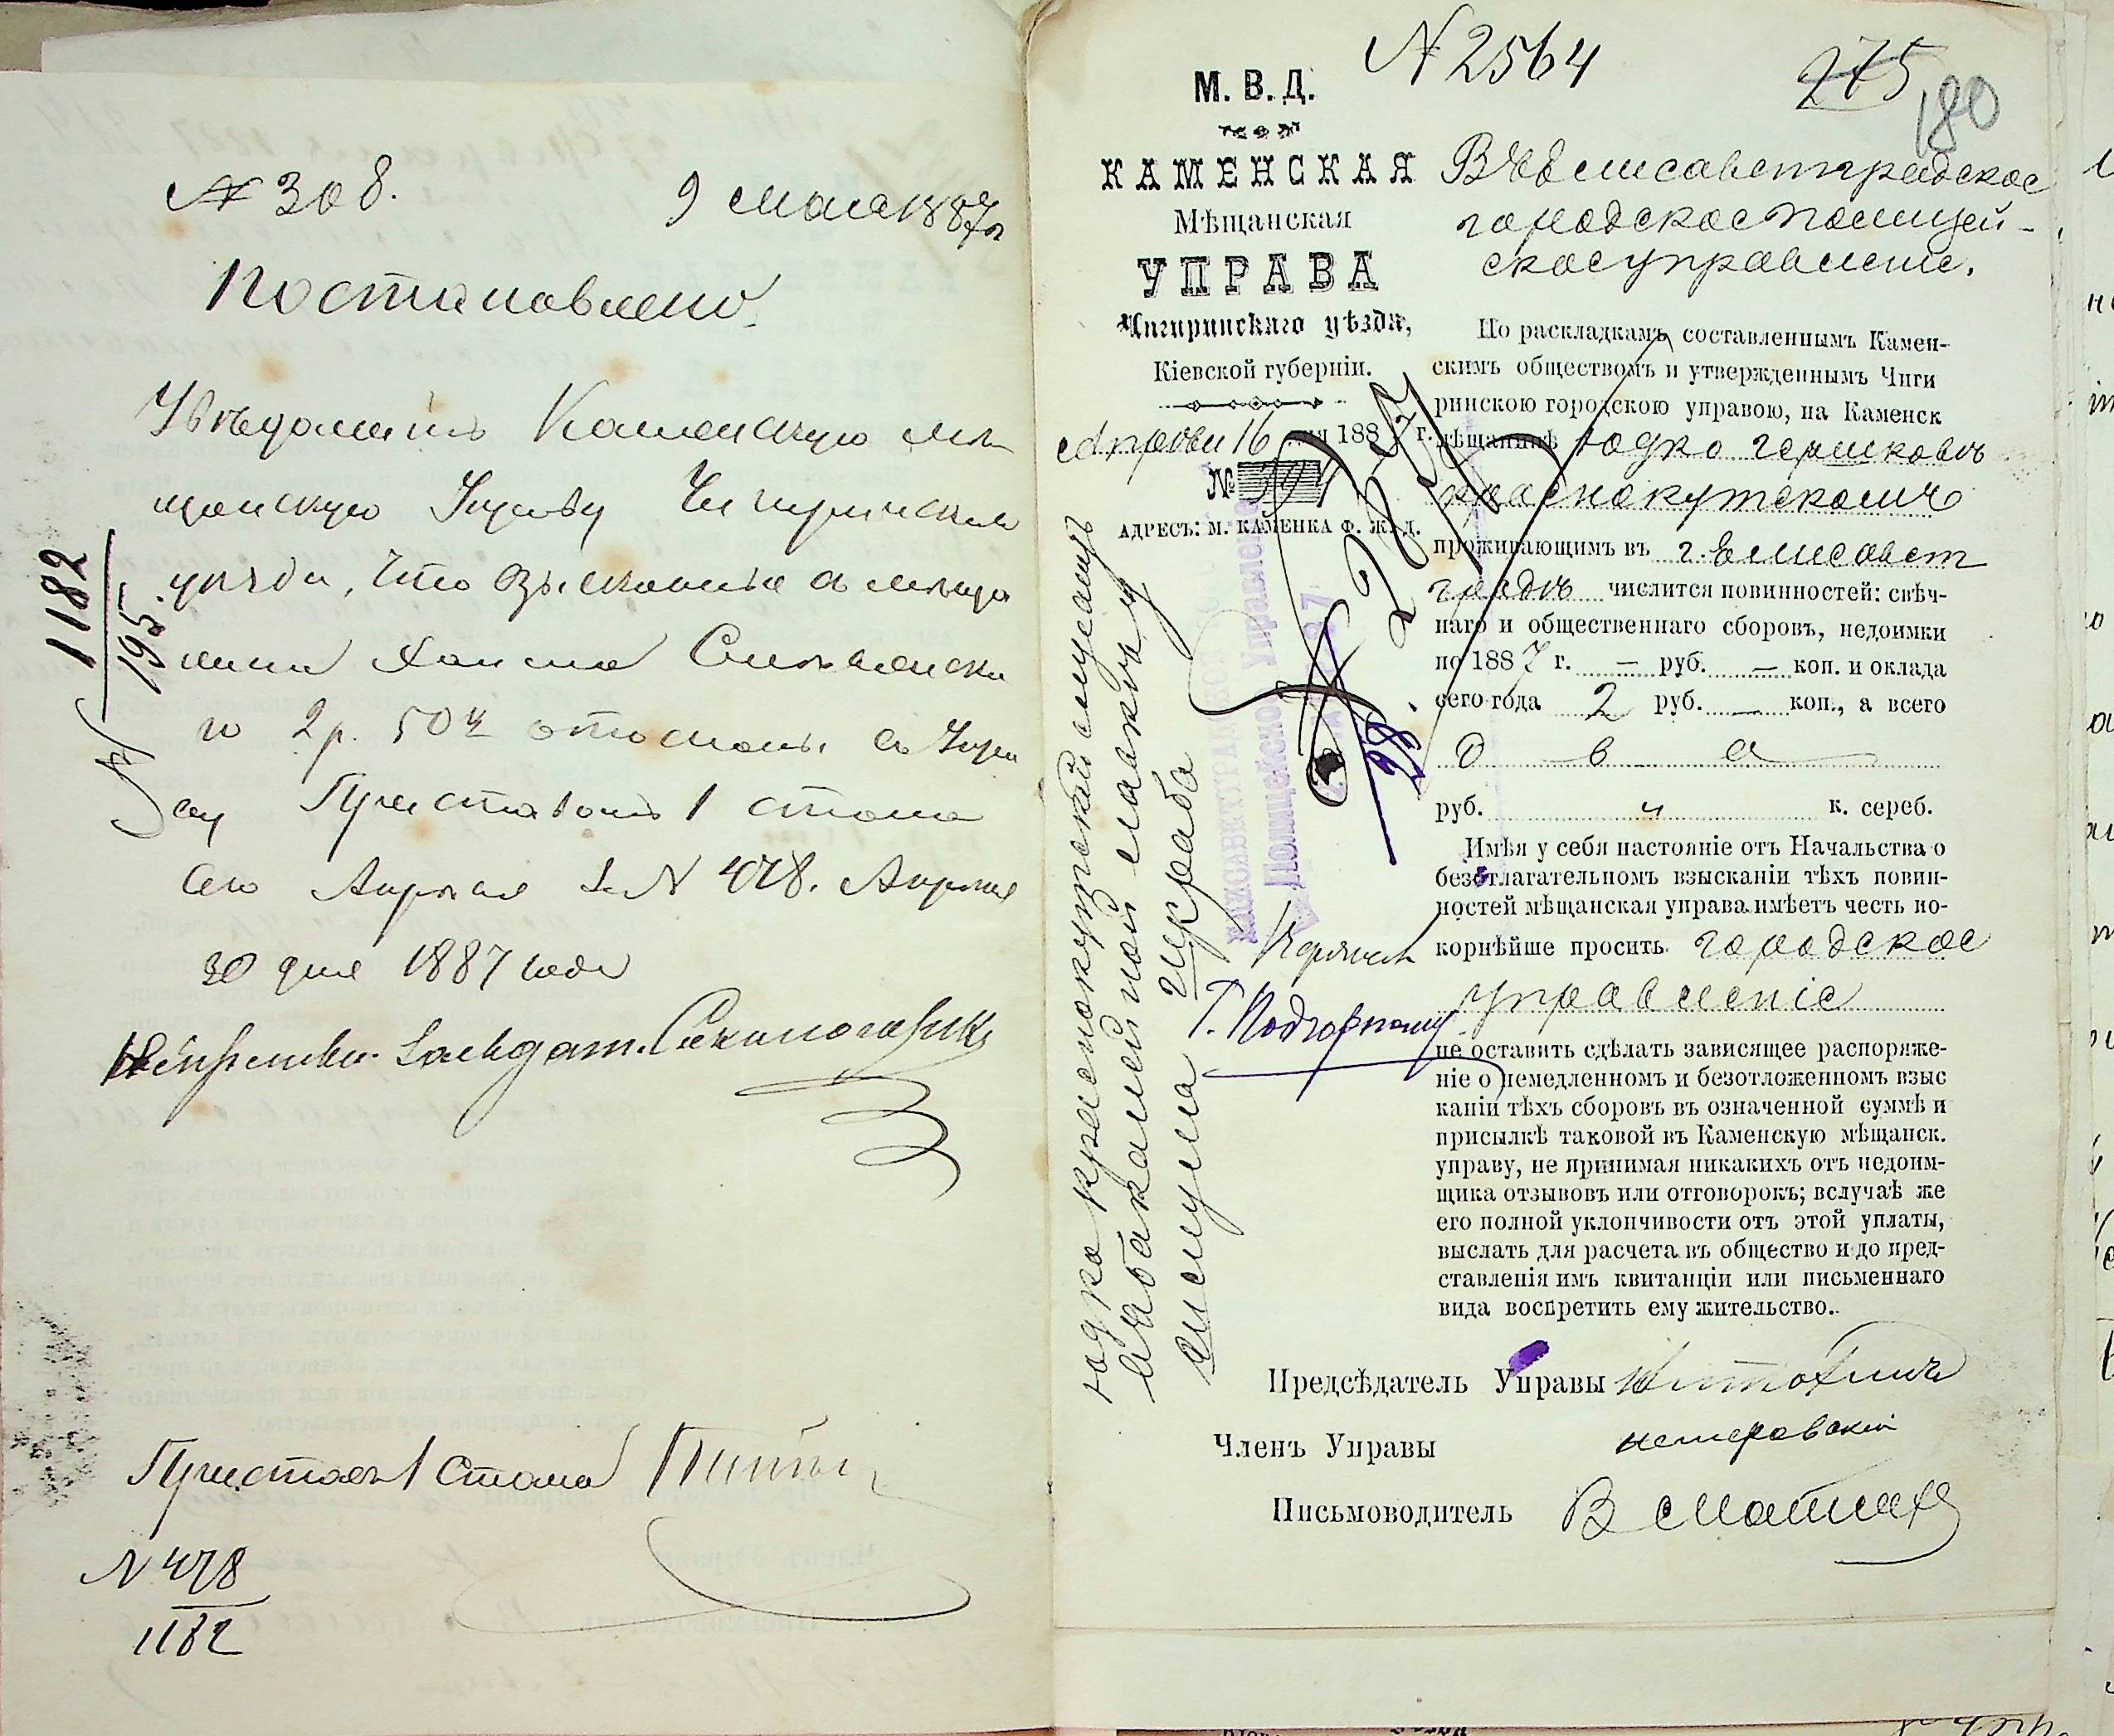 № 308.
9 мая 1887 г
Постановлено
Увѣдомить Каменскую мѣ
щанскую Управу Чигиринскаго
уѣзда, что взысканные съ мѣща
нина Хаима Смѣлянска
го 2 р. 50 к отосланы въ Упра
ву Приставомъ 1 стана
сего Апрѣля за N 478. Апрѣля
30 дня 1887 года
1182
195.
Приставъ 1 стана
N 478
1182
N 2564
275
180
М. В. Д.
КАМЕНСКАЯ
Мѣщанская
УПРАВА
Чигиринскаго уѣзда,
Кіевской губерніи.
Апрѣля 16 дня 1887 г.
№
АДРЕСЪ: М. КАМЕНКА Ф. Ж. Д.
Въ Елисаветградское
городское полицей-
ское управленіе.
По раскладкамъ составленнымъ Камен-
скимъ обществомъ и утвержденнымъ Чиги
ринскою городскою управою, на Каменск
мѣщанинѣ Юдко Гершковѣ
Краснокутскомъ
проживающимъ въ г. Елисавет
градѣ числится повинностей: свѣч-
наго и общественнаго сборовъ, недоимки
по 1887 г. — руб. — коп. и оклада
сего года 2 руб. — коп., а всего
два
руб. к. сереб.
Имѣя у себя настояніе отъ Начальства о
безотлагательномъ взысканіи тѣхъ повин-
ностей мѣщанская управа имѣетъ честь по-
корнѣйше просить городское
управленіе
не оставить сдѣлать зависящее распоряже-
ніе о немедленномъ и безотложенномъ взыс
каніи тѣхъ сборовъ въ означенной суммѣ и
присылкѣ таковой въ Каменскую мѣщанск.
управу, не принимая никакихъ отъ недоим-
щика отзывовъ или отговорокъ; вслучаѣ же
его полной уклончивости отъ этой уплаты,
выслать для расчета въ общество и до пред-
ставленія имъ квитанціи или письменнаго
вида воспретить ему жительство..
Юдко Краснокутскій служащъ
въ бакалейной лавкѣ у
Шкраба
Г. Подгорному
Предсѣдатель Управы
Членъ Управы
Письмоводитель В